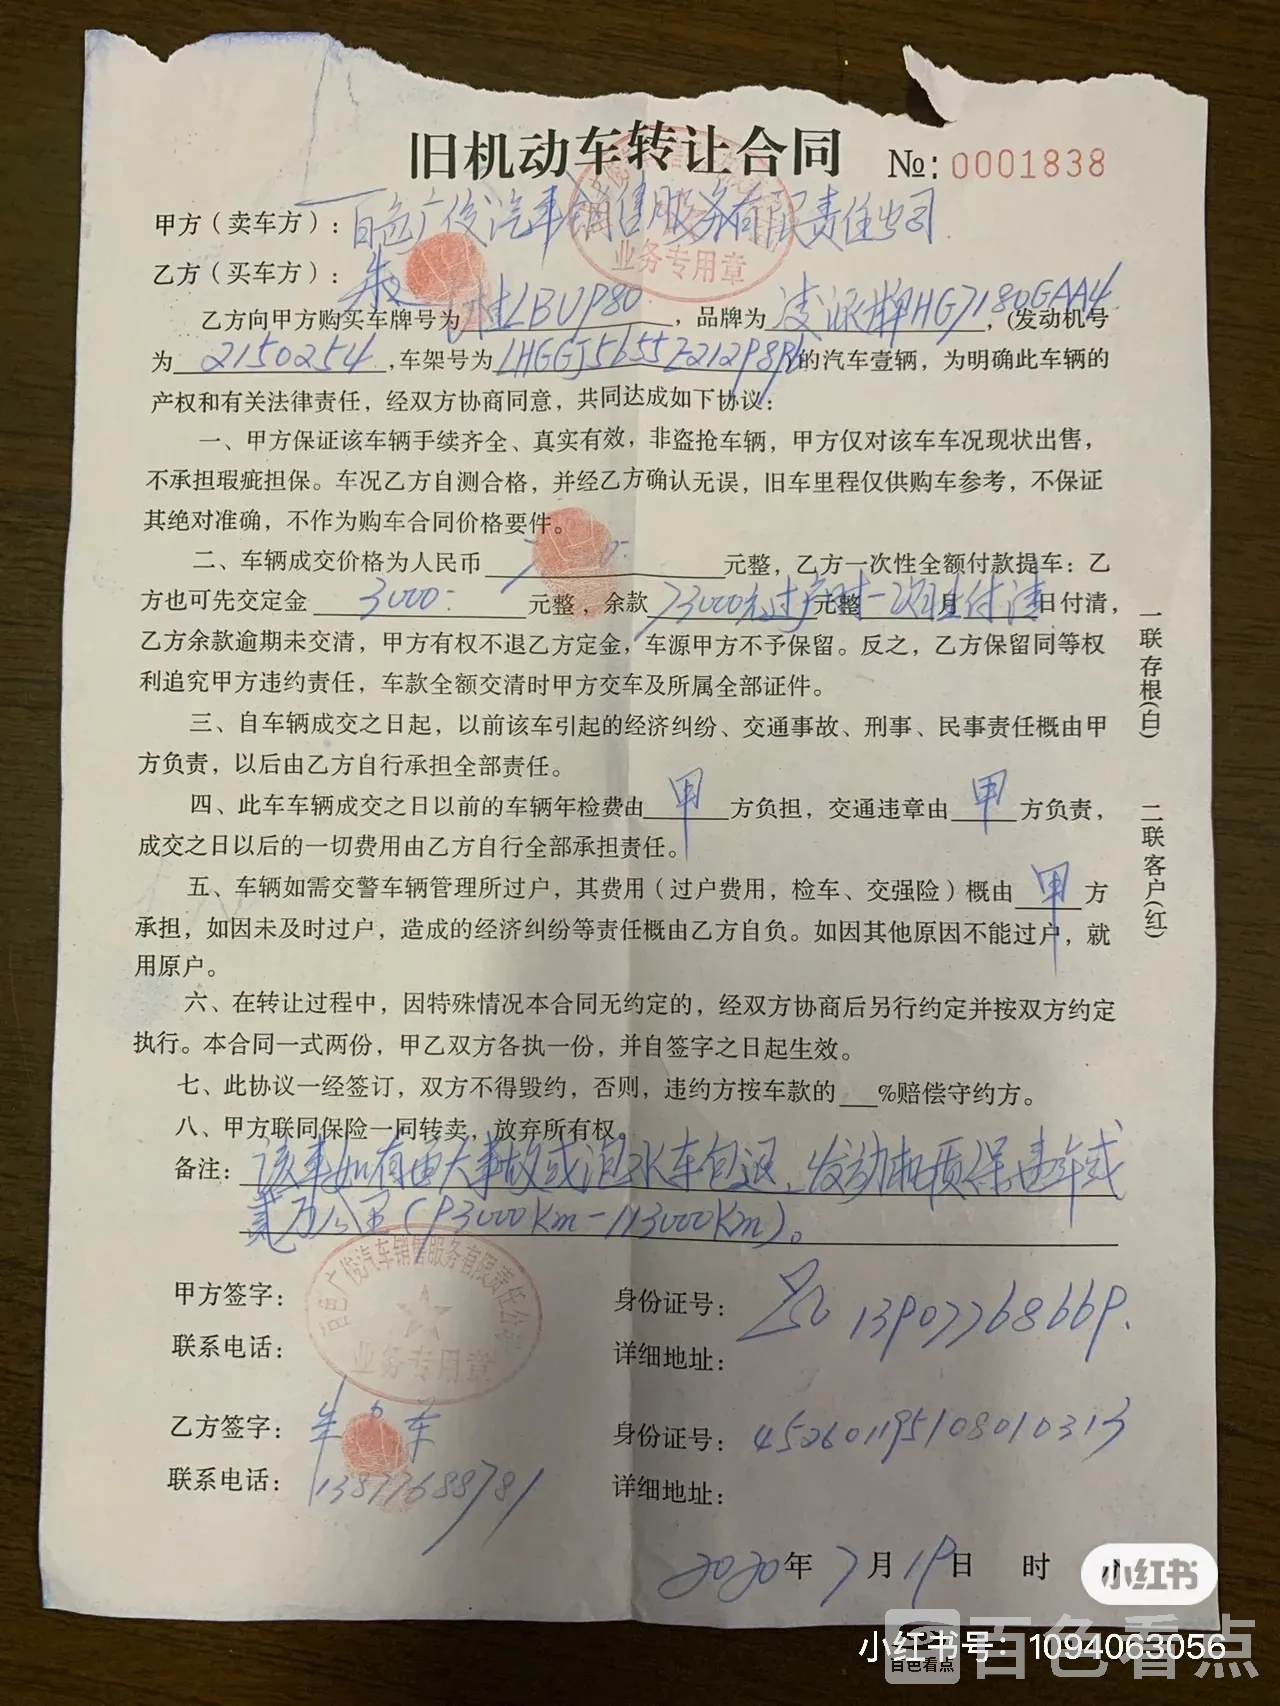 旧机动车转让合同 №: 0001838
甲方（卖车方）: 百色广俊汽车销售服务有限责任公司
业务专用章
乙方（买车方）: 朱
乙方向甲方购买车牌号为 桂LBU980，品牌为 HG7180GAA4，(发动机号
为 2150254，车架号为 的汽车壹辆，为明确此车辆的
产权和有关法律责任，经双方协商同意，共同达成如下协议：
一、甲方保证该车辆手续齐全、真实有效，非盗抢车辆，甲方仅对该车车况现状出售，
不承担瑕疵担保。车况乙方自测合格，并经乙方确认无误，旧车里程仅供购车参考，不保证
其绝对准确，不作为购车合同价格要件。
二、车辆成交价格为人民币 元整，乙方一次性全额付款提车；乙
方也可先交定金 3000 元整，余款 73000元过户时一次性付清 元整 月 日付清，
乙方余款逾期未交清，甲方有权不退乙方定金，车源甲方不予保留。反之，乙方保留同等权
利追究甲方违约责任，车款全额交清时甲方交车及所属全部证件。
三、自车辆成交之日起，以前该车引起的经济纠纷、交通事故、刑事、民事责任概由甲
方负责，以后由乙方自行承担全部责任。
四、此车车辆成交之日以前的车辆年检费由 甲 方负担，交通违章由 甲 方负责，
成交之日以后的一切费用由乙方自行全部承担责任。
五、车辆如需交警车辆管理所过户，其费用（过户费用，检车、交强险）概由 甲 方
承担，如因未及时过户，造成的经济纠纷等责任概由乙方自负。如因其他原因不能过户，就
用原户。
六、在转让过程中，因特殊情况本合同无约定的，经双方协商后另行约定并按双方约定
执行。本合同一式两份，甲乙双方各执一份，并自签字之日起生效。
七、此协议一经签订，双方不得毁约，否则，违约方按车款的 %赔偿守约方。
八、甲方联同保险一同转卖，放弃所有权。
备注：该车如有重大事故或泡水车包退、发动机质保壹年或
贰万公里（93000Km-113000Km）。
百色广俊汽车销售服务有限责任公司
业务专用章
甲方签字： 身份证号： 13907768669.
联系电话： 详细地址：
乙方签字：朱 身份证号：452601195108010313
联系电话：13877688781 详细地址：
2020年7月19日 时
一联存根(白) 二联客户(红)
小红书
小红书号：1094063056
百色看点
百色看点